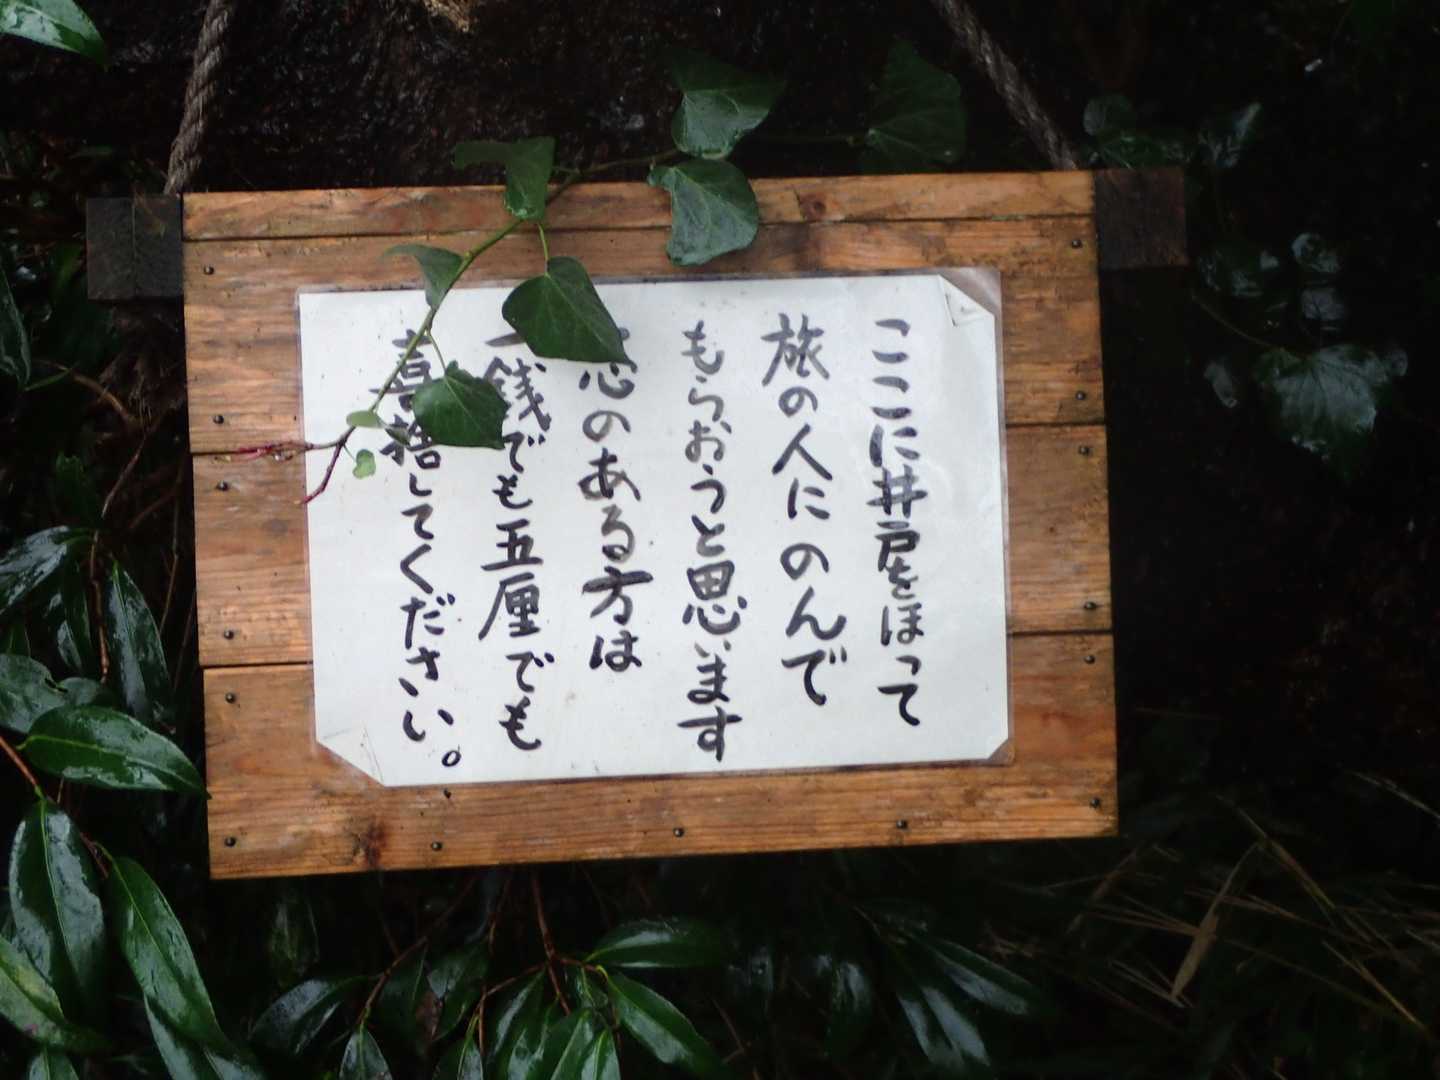 ここに井戸をほって
旅の人にのんで
もらおうと思います
のある方は
一銭でも五厘でも
喜捨してください。